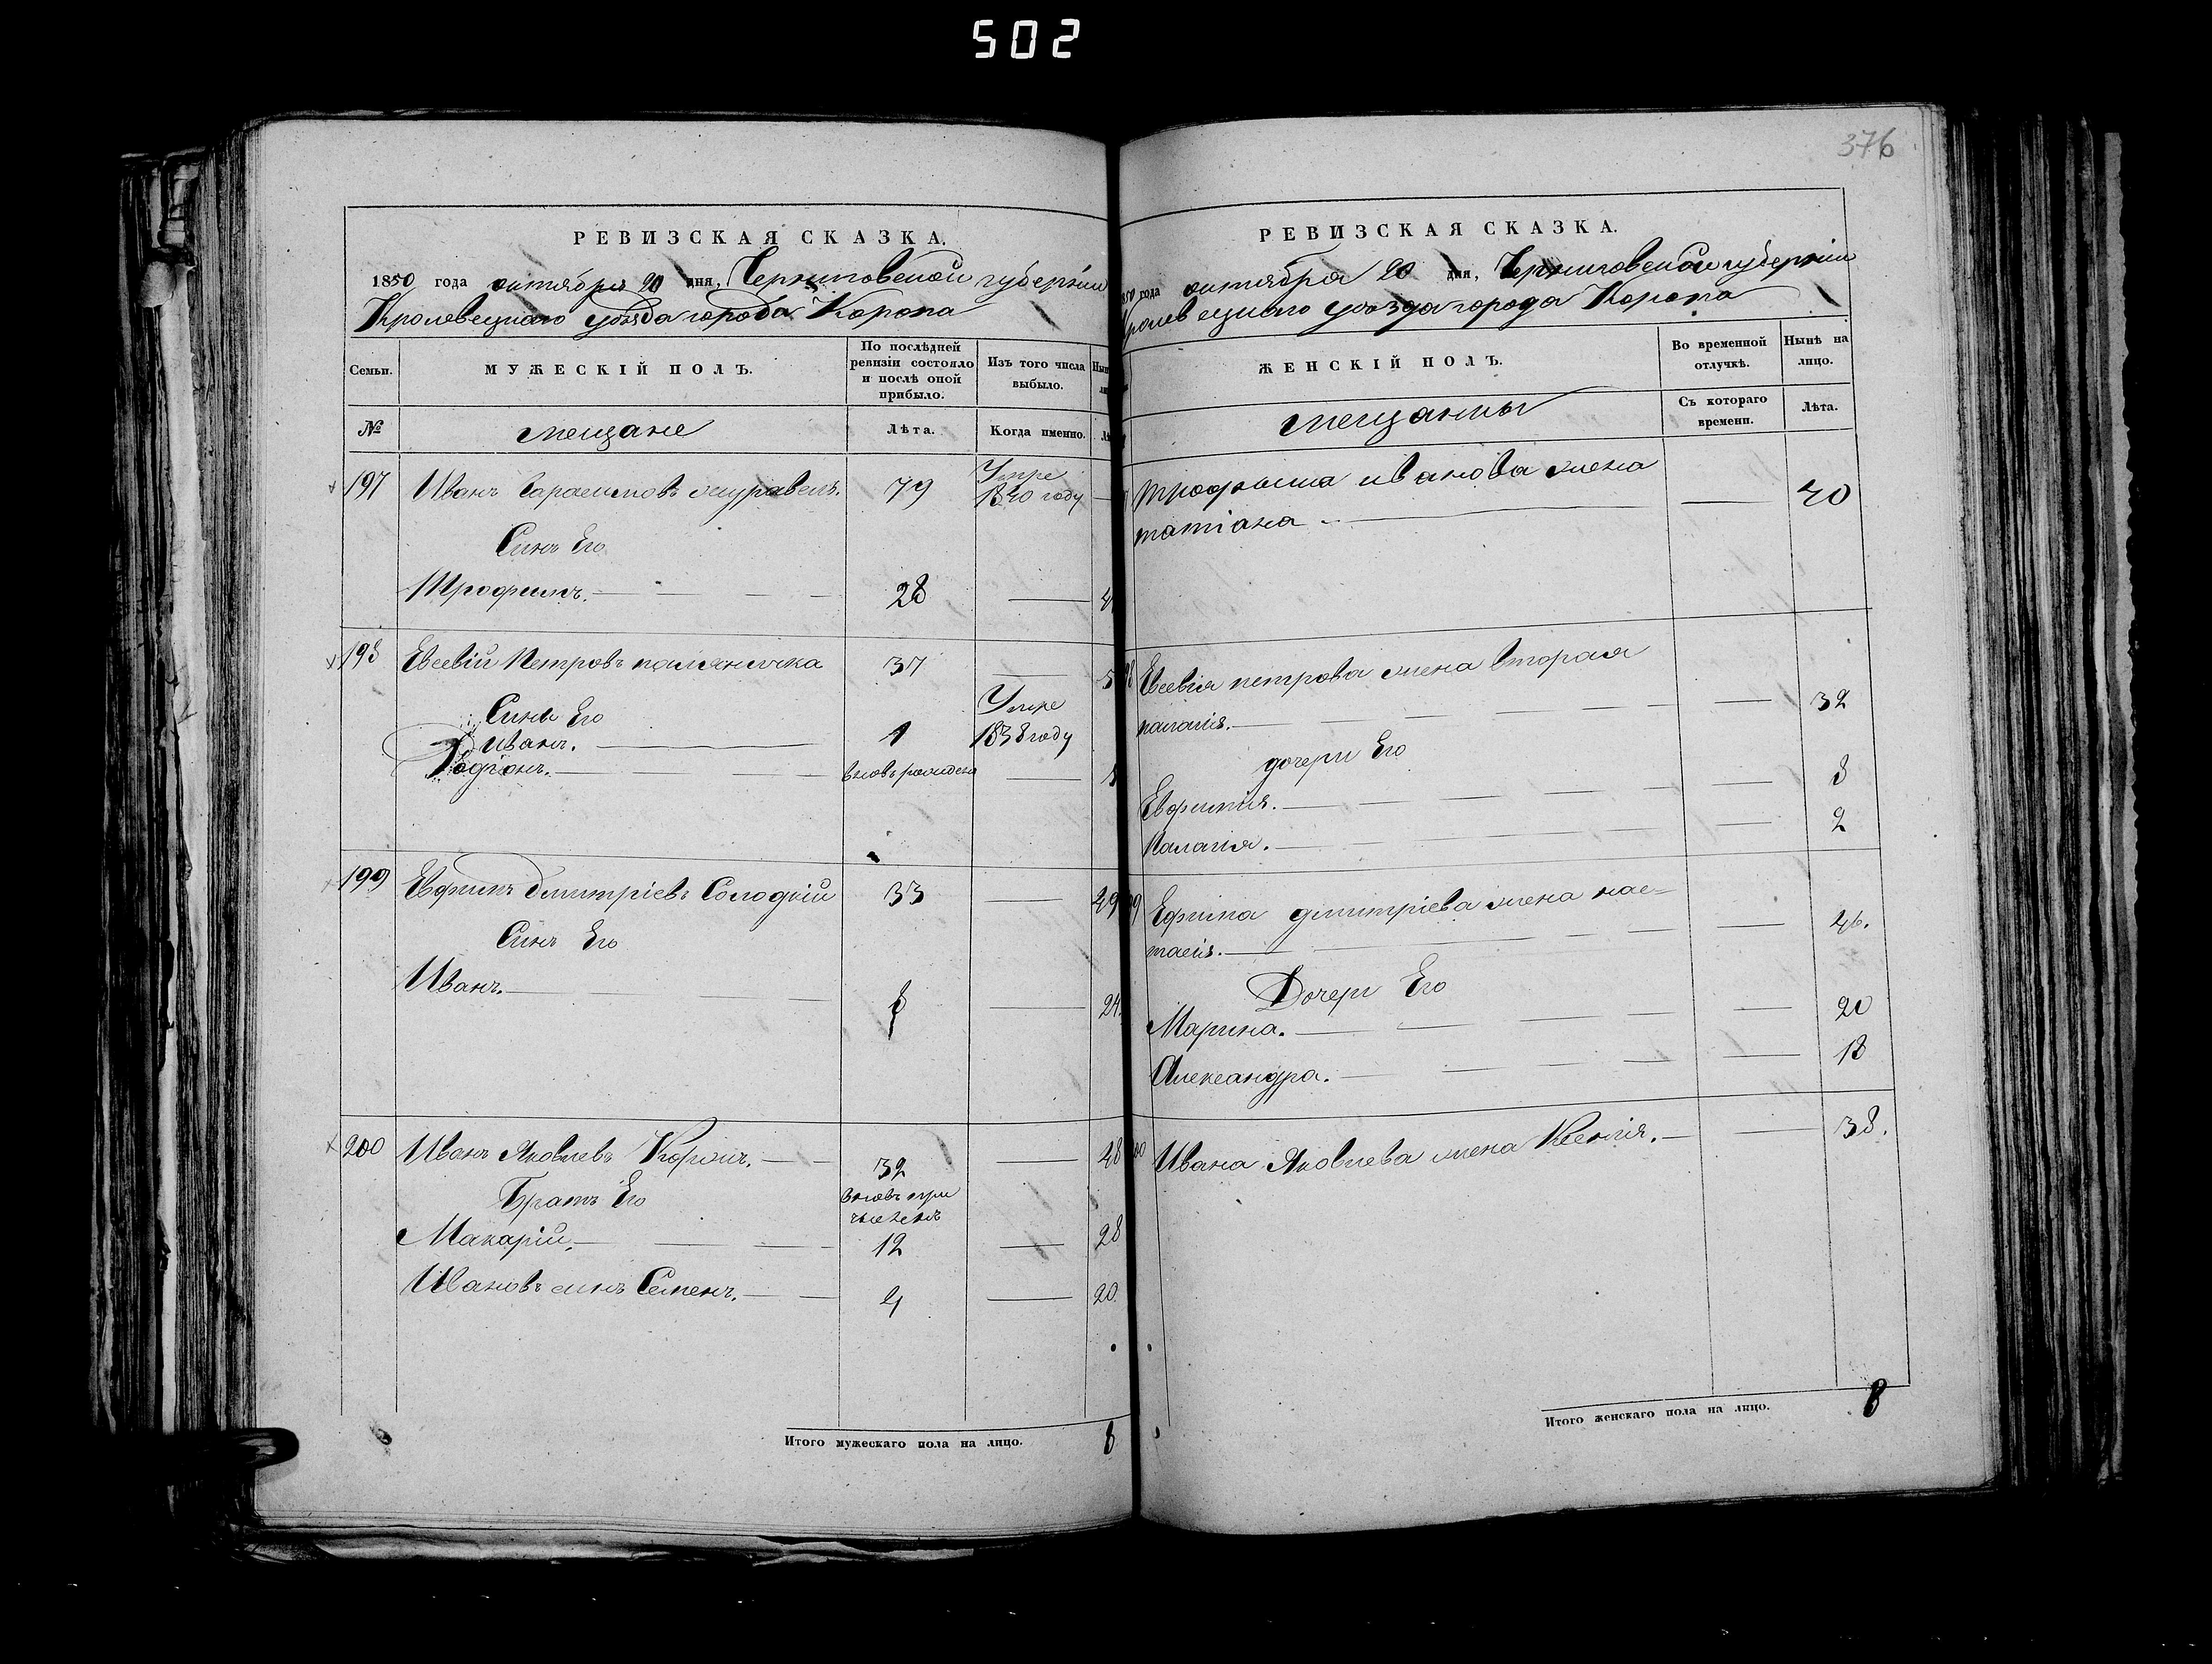 502
376
РЕВИЗСКАЯ СКАЗКА.
1850 года октября 20 дня, Черниговской губерніи
Кролевецкаго уѣзда города Коропа
Семьи.
МУЖЕСКІЙ ПОЛЪ.
По послѣдней ревизіи состояло и послѣ оной прибыло.
Изъ того числа выбыло.
№
мещане
Лѣта.
Когда именно.
197 Иванъ Гарасимовъ журавель. 79 Умре 1840 году —
Синъ Его
Трофимъ. 28 —
198 Евсевій Петровъ паляничка 37 —
Сины Его
Иванъ. 1 Умре 1838 году
Родіонъ. вновь рожденъ —
199 Ефимъ Дмитріевъ Солодкій 33 — 49
Синъ Его
Иванъ. 8 — 24.
200 Иванъ Яковлевъ 32 — 48
Братъ Его вновь при
Макарій. 12 — 28
Ивановъ синъ Семенъ. 4 — 20.
Итого мужескаго пола на лицо. 8
РЕВИЗСКАЯ СКАЗКА.
года октября 20 дня, Черниговской губерніи
Кролевецкаго уѣзда города Коропа
ЖЕНСКІЙ ПОЛЪ.
Во временной отлучкѣ.
Нынѣ на лицо.
мещанки
Съ котораго времени.
Лѣта.
трофима иванова жена
татіана — 40
Евсевія петрова жена вторая
палагія. — 32
дочери Его
Евфимія. — 8
Палагія. — 2
Ефима дмитріева жена нас=
тасія. — 46.
Дочери Его
Марина. — 20
Александра. — 18
Ивана Яковлева жена Ксенія. — 38.
Итого женскаго пола на лицо. 8